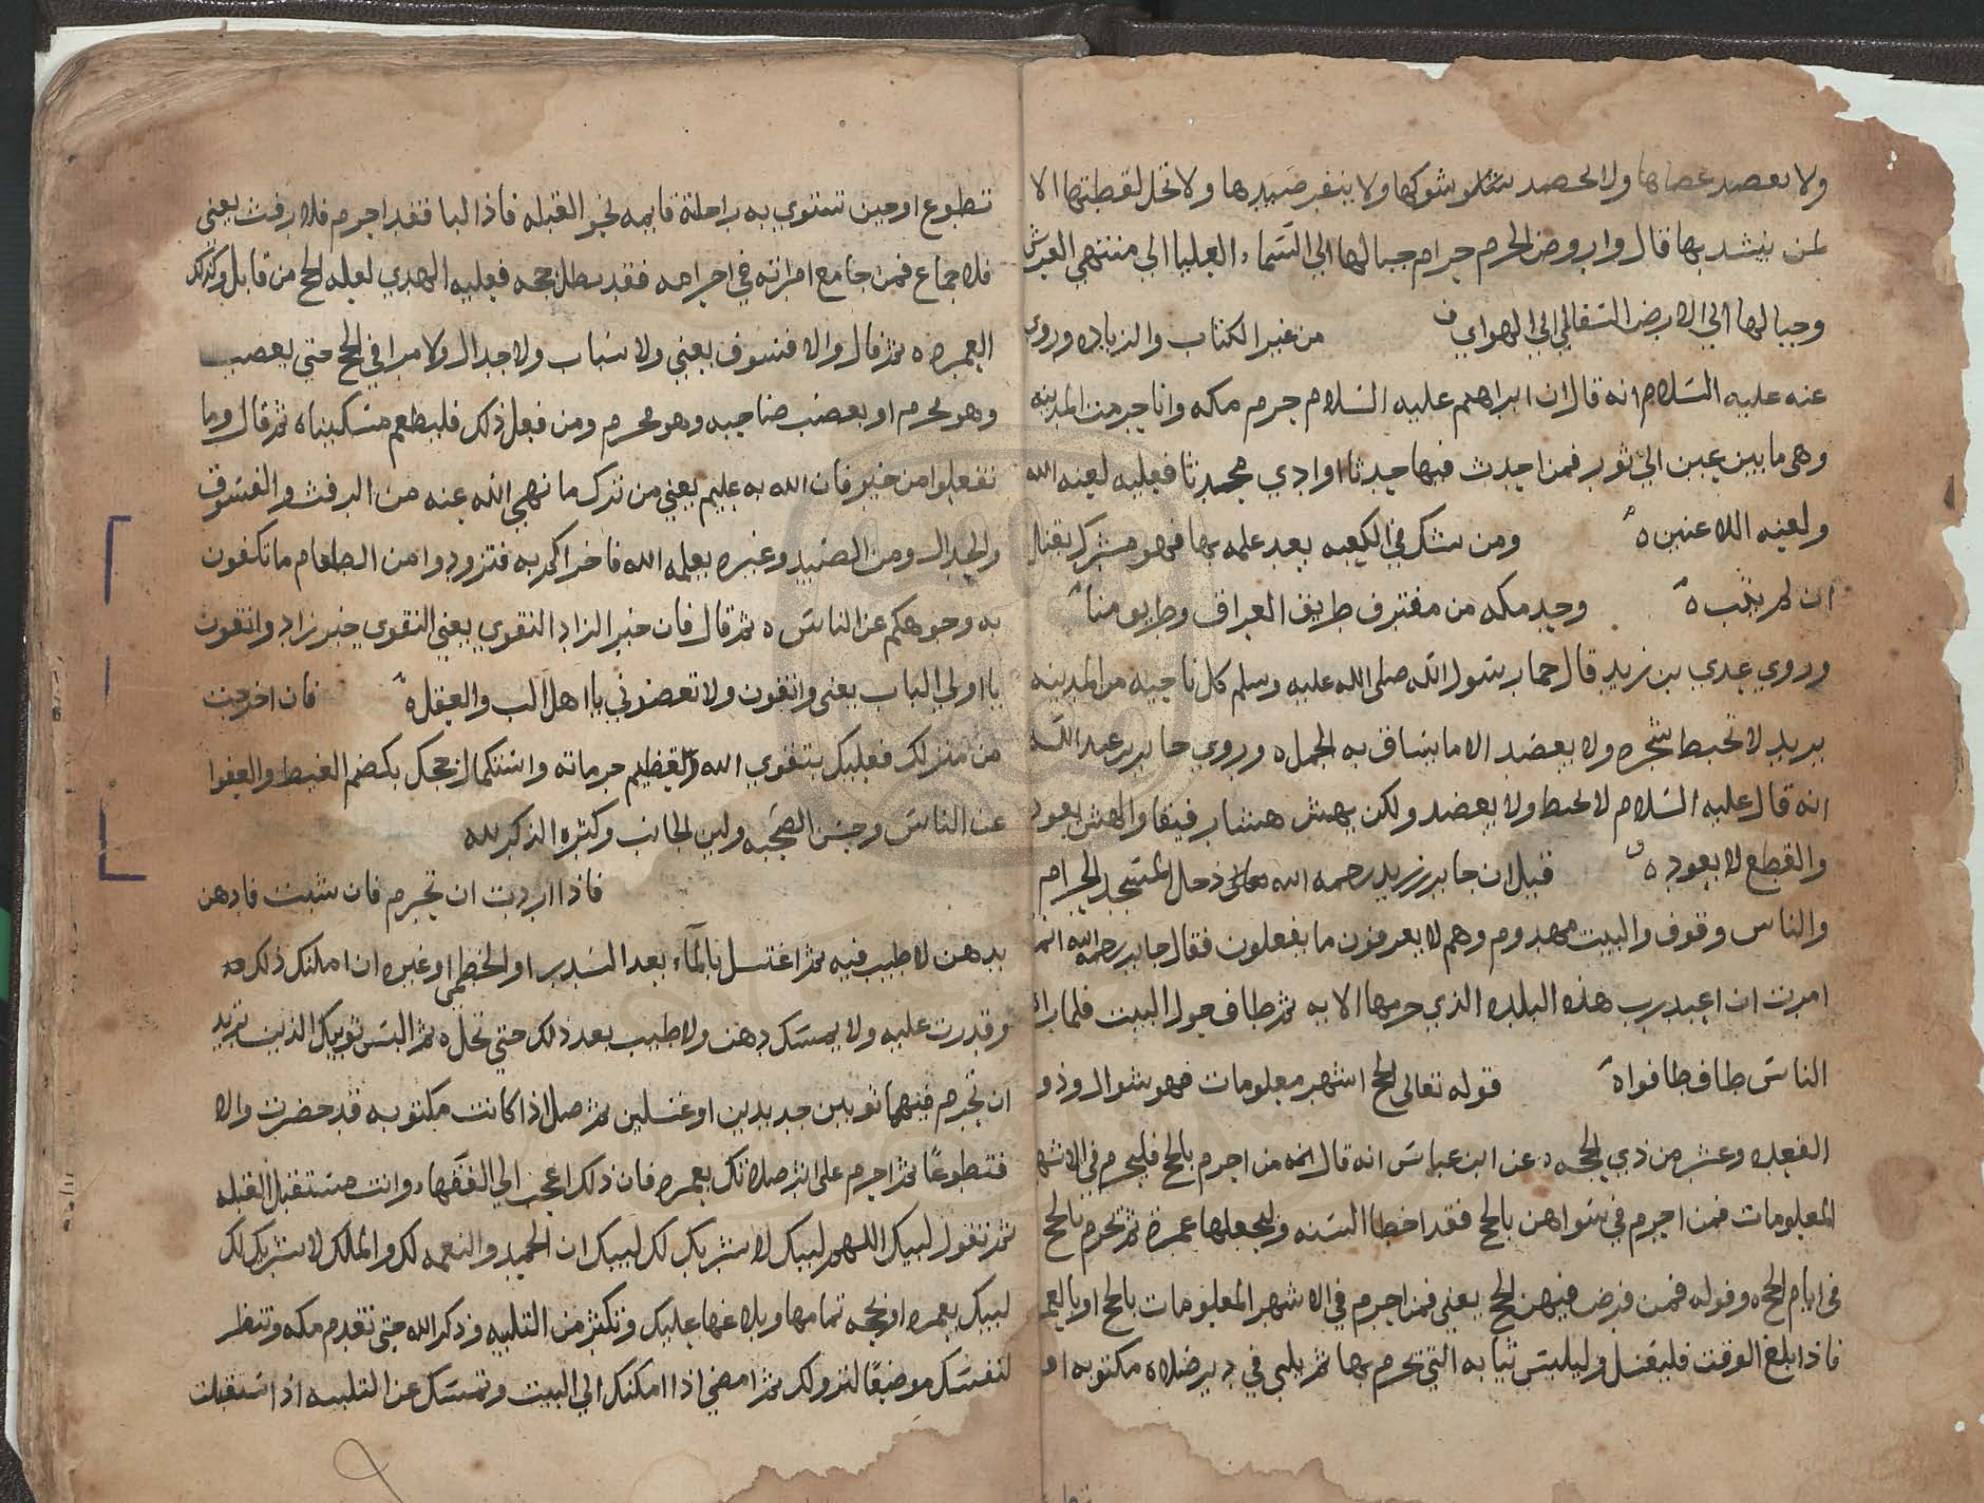 ولا يعصد عصاها ولا يحصد شوكها ولا ينفر صيدها ولا تحل لقطتها الا
لمن ينشد بها قال وارض الحرم حرام جبالها الى السماء العليا الي منتهي العرش
وجبالها الي الارض السفالي الي الهواي من غير الكتاب والزياده وروي
عنه عليه السلام انه قال ان ابراهيم عليه السلام حرم مكه وانا حرمت المدينه
وهي ما بين عين الي ثور فمن احدث فيها حدثا او اوي محدثا فعليه لعنه الله
ولعنه اللاعنين ه ومن شك في الكعبه بعد علمه بها فهو مشرك يقتل
ان لم يتب ه وحد مكه من مفترق طريق العراق وطريق منا
وروي عدي بن زيد قال حما رسول الله صلى الله عليه وسلم كل ناحيه من المدينه
بريد لا تخبط شجره ولا يعضد الا ما يساق به الجمل ه وروي جابر بن عبد الله
انه قال عليه السلام لا يخبط ولا يعضد ولكن يهش هشا رفيقا والهش يعود
والقطع لا يعود ه قيل ان جابر بن زيد رحمه الله دخل المسجد الحرام
والناس وقوف والبيت مهدوم وهم لا يعرفون ما يفعلون فقال جابر رحمه الله انما
امرت ان اعبد رب هذه البلده الذي حرمها الايه ثم طاف حول البيت فلما راه
الناس طاف طافوا ه قوله تعالى الحج اشهر معلومات فهو شوال وذو
القعده وعشر من ذي الحجه ه عن ابن عباس انه قال انه من احرم بالحج فليحرم في الاشهر
المعلومات فمن احرم في سواهن بالحج فقد اخطا السنه وليجعلها عمرة ثم يحرم بالحج
في ايام الحج ه وقوله فمن فرض فيهن الحج يعني فمن احرم في الاشهر المعلومات بالحج او بالعمره
فاذا بلغ الوقت فليغتسل وليلبس ثيابه التي يحرم بها ثم يلبي في دبر صلاه مكتوبه او
تطوع او حين تستوي به راحلته قايمه نحو القبله فاذا لبا فقد احرم فلا رفث يعني
فلا جماع فمن جامع امراته في احرامه فقد بطل حجه فعليه الهدي لعله الحج من قابل وكذلك
العمره ه ثم قال ولا فسوق يعني ولا سباب ولا جدال ولا مرا في الحج حتى يغضب
وهو محرم او يغضب صاحبه وهو محرم ومن فعل ذلك فليطعم مسكينا ه ثم قال وما
تفعلوا من خير فان الله به عليم يعني من ترك ما نهي الله عنه من الرفث والفسوق
والجدال ومن الصيد وغيره يعلمه الله فتزودوا من الطعام ما تكفون
به وجوهكم عن الناس ه ثم قال فان خير الزاد التقوي يعني التقوي خير زاد واتقون
يا اولي الباب يعني واتقون ولا تعصوني يا اهل الب والعقل ه فان اخرجت
من منزلك فعليك بتقوي الله وتعظيم حرماته واستكمال حجك بكضم الغيظ والعفوا
عن الناس وحسن الصحبه ولين الجانب وكثره الذكر لله
فاذا اردت ان تحرم فان شيت فادهن
بدهن لا طيب فيه ثم اغتسل بالماء بعد السدر او الخطمي او غيره ان امكنك ذلك
وقدرت عليه ولا يمسك دهن ولا طيب بعد ذلك حتي تحل ه ثم البس ثوبيك الذين تريد
ان تحرم فيهما ثوبين جديدين او غسلين ثم صل اذا كانت مكتوبه قد حضرت والا
فتطوعًا ثم احرم على اثر صلاتك بعمره فان ذلك اعجب الي الفقهاء وانت مستقبل القبله
ثم تقول لبيك اللهم لبيك لا شريك لك لبيك ان الحمد والنعمه لك والملك لا شريك لك
لبيك بعمره او بحجه تمامها وبلاغها عليك وتكثر من التلبيه وذكر الله حتى تقدم مكه وتنظر
لنفسك موضعًا لنزولك ثم امضي اذا امكنك الي البيت وتمسك عن التلبيه اذا استقبلت